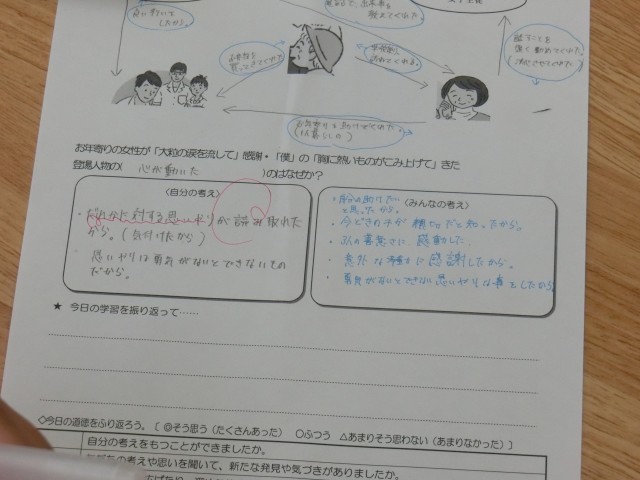 良い行いを
したから。
教えてくれた
助けてくれる。
強く勧めてくれた。
(決心させてくれた)
お年寄りを助けてくれた。
お年寄りの女性が「大粒の涙を流して」感謝・「僕」の「胸に熱いものがこみ上げて」きた
登場人物の( 心が動いた )のはなぜか?
〈自分の考え〉
に対する思いやりが読み取れた
から。(気付けたから)
・思いやりは勇気がないとできないもの
だから。
〈みんなの考え〉
・自分の助けたい
と思ったから。
・今どきの子が親切だと知ったから。
・3人の善意さに感動した。
・意外な優しさに感謝したから。
・勇気がないとできない思いやりは事をしたから
★ 今日の学習を振り返って……
◇今日の道徳をふり返ろう。〔 ◎そう思う(たくさんあった) ○ふつう △あまりそう思わない(あまりなかった)〕
自分の考えをもつことができましたか。
の考えや思いを聞いて、新たな発見や気づきがありましたか。